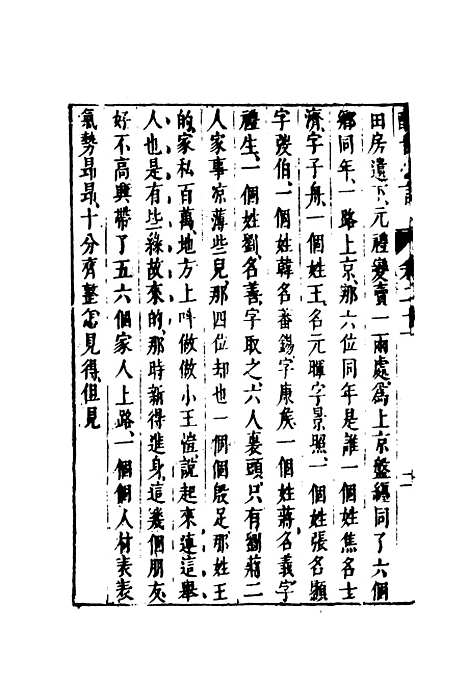 田房遺下元禮變賣一兩處爲上京盤纏同了六個
鄉同年、一路上京、那六位同年是誰一個姓焦名士
濟、字子舟、一個姓王、名元暉字景照、一個姓張名顯
字弢伯、一個姓韓名蕃錫、字康矦、一個姓蔣名義字
禮生、一個姓劉、名善字取之、六人裏頭、只有劉蔣二
人家事凉薄些兒、那四位却也一個個殷足、那姓王
的、家私百萬、地方上呌做做小王愷、說起來連這舉
人也是有些緣故來的、那時新得進身、這幾個朋友
好不高興帶了五六個家人上路、一個個人材表表
氣勢昂昂、十分齊整怎見得、但見